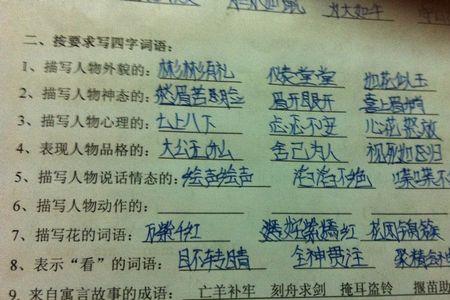 大如牛
二、按要求写四字词语:
1、描写人物外貌的:彬彬有礼 仪表堂堂 如花似玉
2、描写人物神态的:愁眉苦脸 眉开眼 喜上眉梢
3、描写人物心理的:七上八下 忐忑不安 心花怒放
4、表现人物品格的:大公无私 舍己为人 视死如归
5、描写人物说话情态的:绘声绘声 滔滔不绝 喋喋不
6、描写人物动作的:
7、描写花的词语:万紫千红 紫嫣红 花团锦簇
8、表示“看”的词语:目不转睛 全神贯注 聚精会神
9、来自寓言故事的成语: 亡羊补牢 刻舟求剑 掩耳盗铃 揠苗助